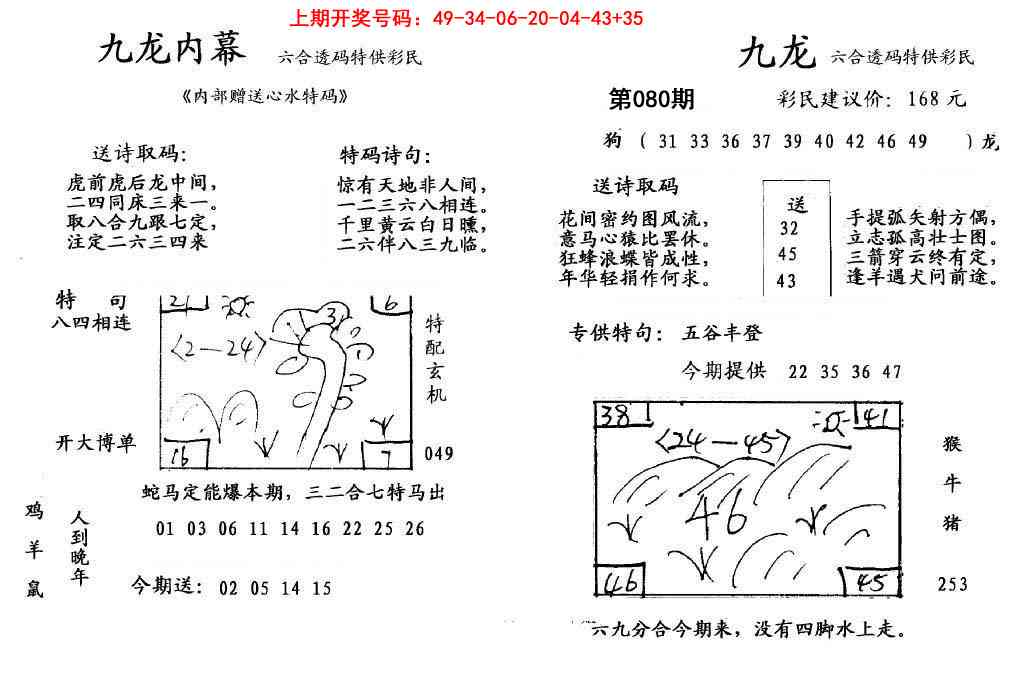 上期开奖号码：49-34-06-20-04-43+35
九龙内幕 六合透码特供彩民
《内部赠送心水特码》
送诗取码：
虎前虎后龙中间，
二四同床三来一。
取八合九跟七定，
注定二六三四来
特码诗句：
惊有天地非人间，
一二三六八相连。
千里黄云白日曛，
二六伴八三九临。
特 句
八四相连
开大博单
21
6
3
〈2—24〉
16
7
特配玄机
049
蛇马定能爆本期，三二合七特马出
鸡羊鼠
人到晚年
01 03 06 11 14 16 22 25 26
今期送：02 05 14 15
九龙 六合透码特供彩民
第080期 彩民建议价：168元
狗（31 33 36 37 39 40 42 46 49 ）龙
送诗取码
花间密约图风流，
意马心猿比罢休。
狂蜂浪蝶皆成性，
年华轻捐作何求。
送
32
45
43
手提弧矢射方偶，
立志孤高壮士图。
三箭穿云终有定，
逢羊遇犬问前途。
专供特句：五谷丰登
今期提供 22 35 36 47
38
41
〈24—45〉
46
46
45
猴
牛
猪
253
六九分合今期来，没有四脚水上走。